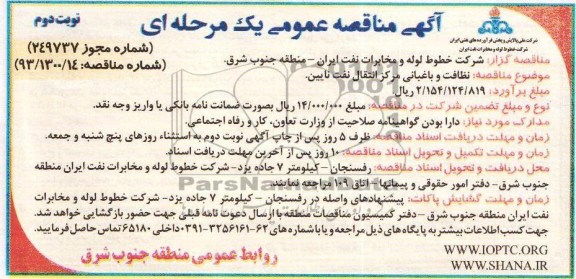 آگهی مناقصه عمومی یک مرحله ای
نوبت دوم
شرکت ملی پالایش و پخش فرآورده های نفتی ایران
شرکت خطوط لوله و مخابرات نفت ایران
(شماره مجوز ۲۴۹۷۳۷)
(شماره مناقصه: ۹۳/۱۳۰۰/۱۴)
مناقصه گزار: شرکت خطوط لوله و مخابرات نفت ایران - منطقه جنوب شرق.
موضوع مناقصه: نظافت و باغبانی مرکز انتقال نفت نایین.
مبلغ برآورد: ۲/۱۵۴/۱۲۴/۸۱۹ ریال.
نوع و مبلغ تضمین شرکت در مناقصه: مبلغ ۱۴/۰۰۰/۰۰۰ ریال بصورت ضمانت نامه بانکی یا واریز وجه نقد.
مدارک مورد نیاز: دارا بودن گواهینامه صلاحیت از وزارت تعاون، کار و رفاه اجتماعی.
زمان و مهلت دریافت اسناد مناقصه: ظرف ۵ روز پس از چاپ آگهی نوبت دوم به استثناء روزهای پنج شنبه و جمعه.
زمان و مهلت تکمیل و تحویل اسناد مناقصه: ۱۰ روز پس از آخرین مهلت دریافت اسناد.
محل دریافت و تحویل اسناد مناقصه: رفسنجان - کیلومتر ۷ جاده یزد- شرکت خطوط لوله و مخابرات نفت ایران منطقه
جنوب شرق- دفتر امور حقوقی و پیمانها- اتاق ۱۰۹ مراجعه نمایند.
زمان و مهلت گشایش پاکات: پیشنهادهای واصله در رفسنجان- کیلومتر ۷ جاده یزد- شرکت خطوط لوله و مخابرات
نفت ایران منطقه جنوب شرق - دفتر کمیسیون مناقصات منطقه با ارسال دعوت نامه قبلی جهت حضور بازگشایی خواهد شد.
جهت کسب اطلاعات بیشتر به پایگاه های ذیل مراجعه و یا با شماره های ۶۲-۳۲۵۶۱۶۱-۰۳۹۱ داخلی ۶۵۱۸۰ تماس حاصل فرمایید.
WWW.IOPTC.ORG
WWW.SHANA.IR
روابط عمومی منطقه جنوب شرق